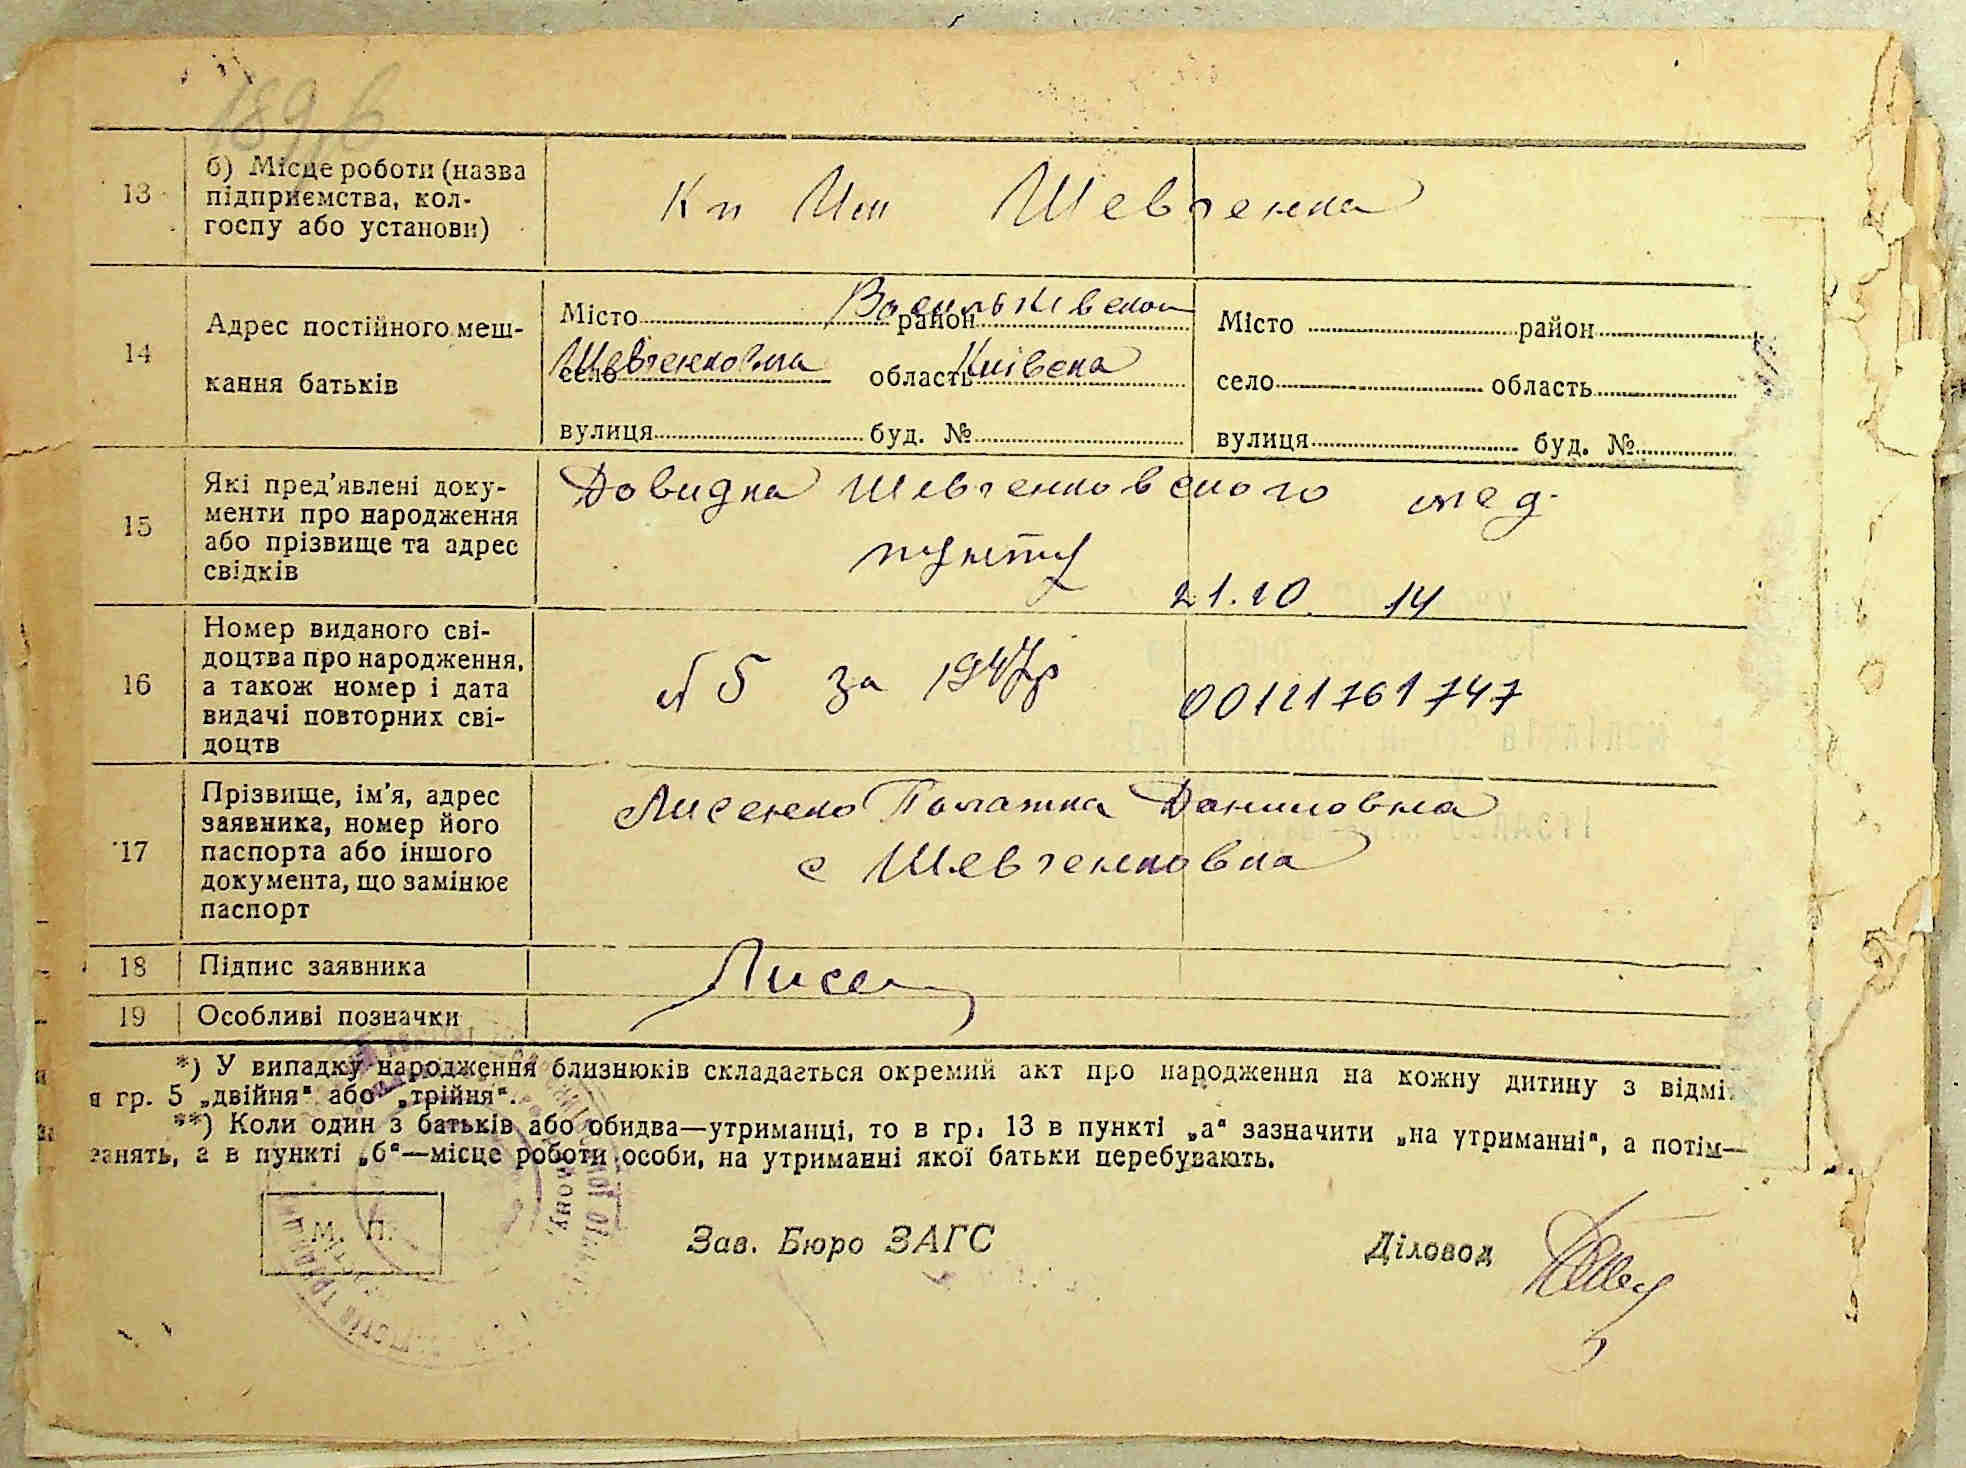 189,б
13
б) Місце роботи (назва
підприємства, кол-
госпу або установи)
Кп Ім Шевченка
14
Адрес постійного меш-
кання батьків
Місто район Васильківском
село Шевченковка область Київска
вулиця буд. №
Місто район
село область
вулиця буд. №
15
Які пред'явлені доку-
менти про народження
або прізвище та адрес
свідків
Довидка Шевченковского мед.
пункту
21.10. 14
16
Номер виданого сві-
доцтва про народження,
а також номер і дата
видачі повторних сві-
доцтв
№ 5 за 1947р
00121761747
17
Прізвище, ім'я, адрес
заявника, номер його
паспорта або іншого
документа, що замінює
паспорт
Лисенко Палажка Даниловна
с Шевченковка
18
Підпис заявника
Лисен
19
Особливі позначки
*) У випадку народження близнюків складається окремий акт про народження на кожну дитину з відмі
в гр. 5 „двійня“ або „трійня“.
**) Коли один з батьків або обидва—утриманці, то в гр. 13 в пункті „а“ зазначити „на утриманні“, а потім—
занять, а в пункті „б“—місце роботи особи, на утриманні якої батьки перебувають.
М. П.
Зав. Бюро ЗАГС
Діловод